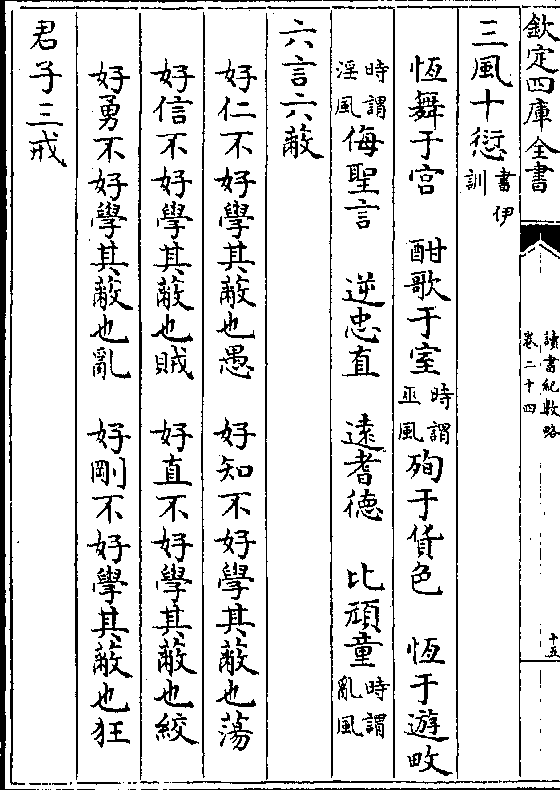 欽定四庫全書
讀書紀數略
卷二十四
十五
三風十愆書伊訓
恆舞于宮　酣歌于室時謂巫風殉于貨色　恆于遊畋
時謂淫風侮聖言　逆忠直　遠耆德　比頑童時謂亂風
六言六蔽
好仁不好學其蔽也愚　好知不好學其蔽也蕩
好信不好學其蔽也賊　好直不好學其蔽也絞
好勇不好學其蔽也亂　好剛不好學其蔽也狂
君子三戒